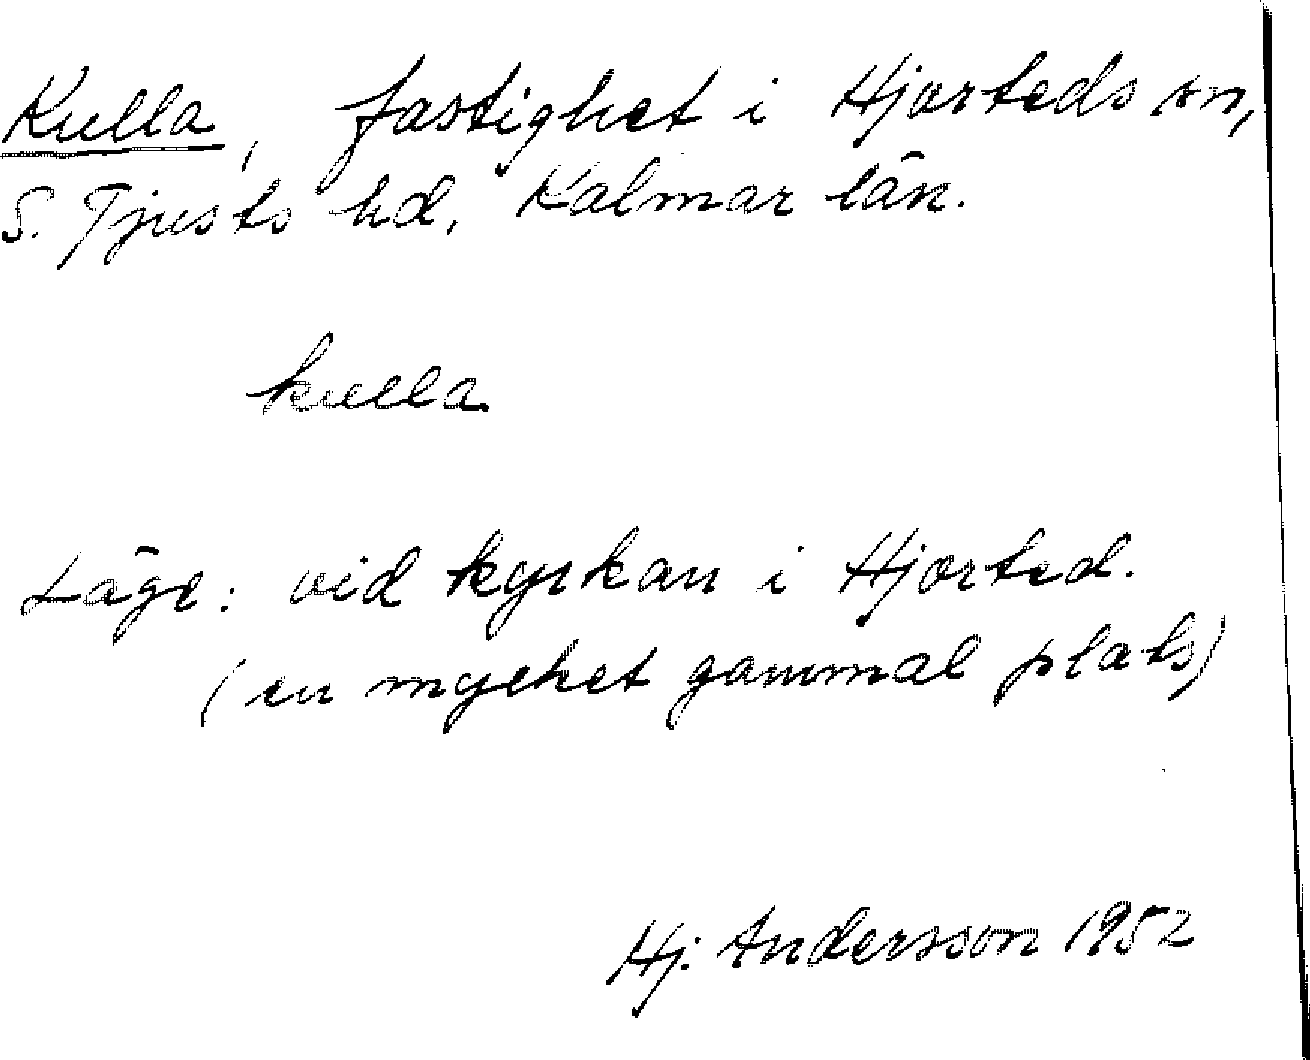 Kulla, fastighet i Hjorteds sn,
S. Tjusts hd, Kalmar län.
kulla
Läge: vid kyrkan i Hjorted.
(en mycket gammal plats)
Hj. Andersson 1952